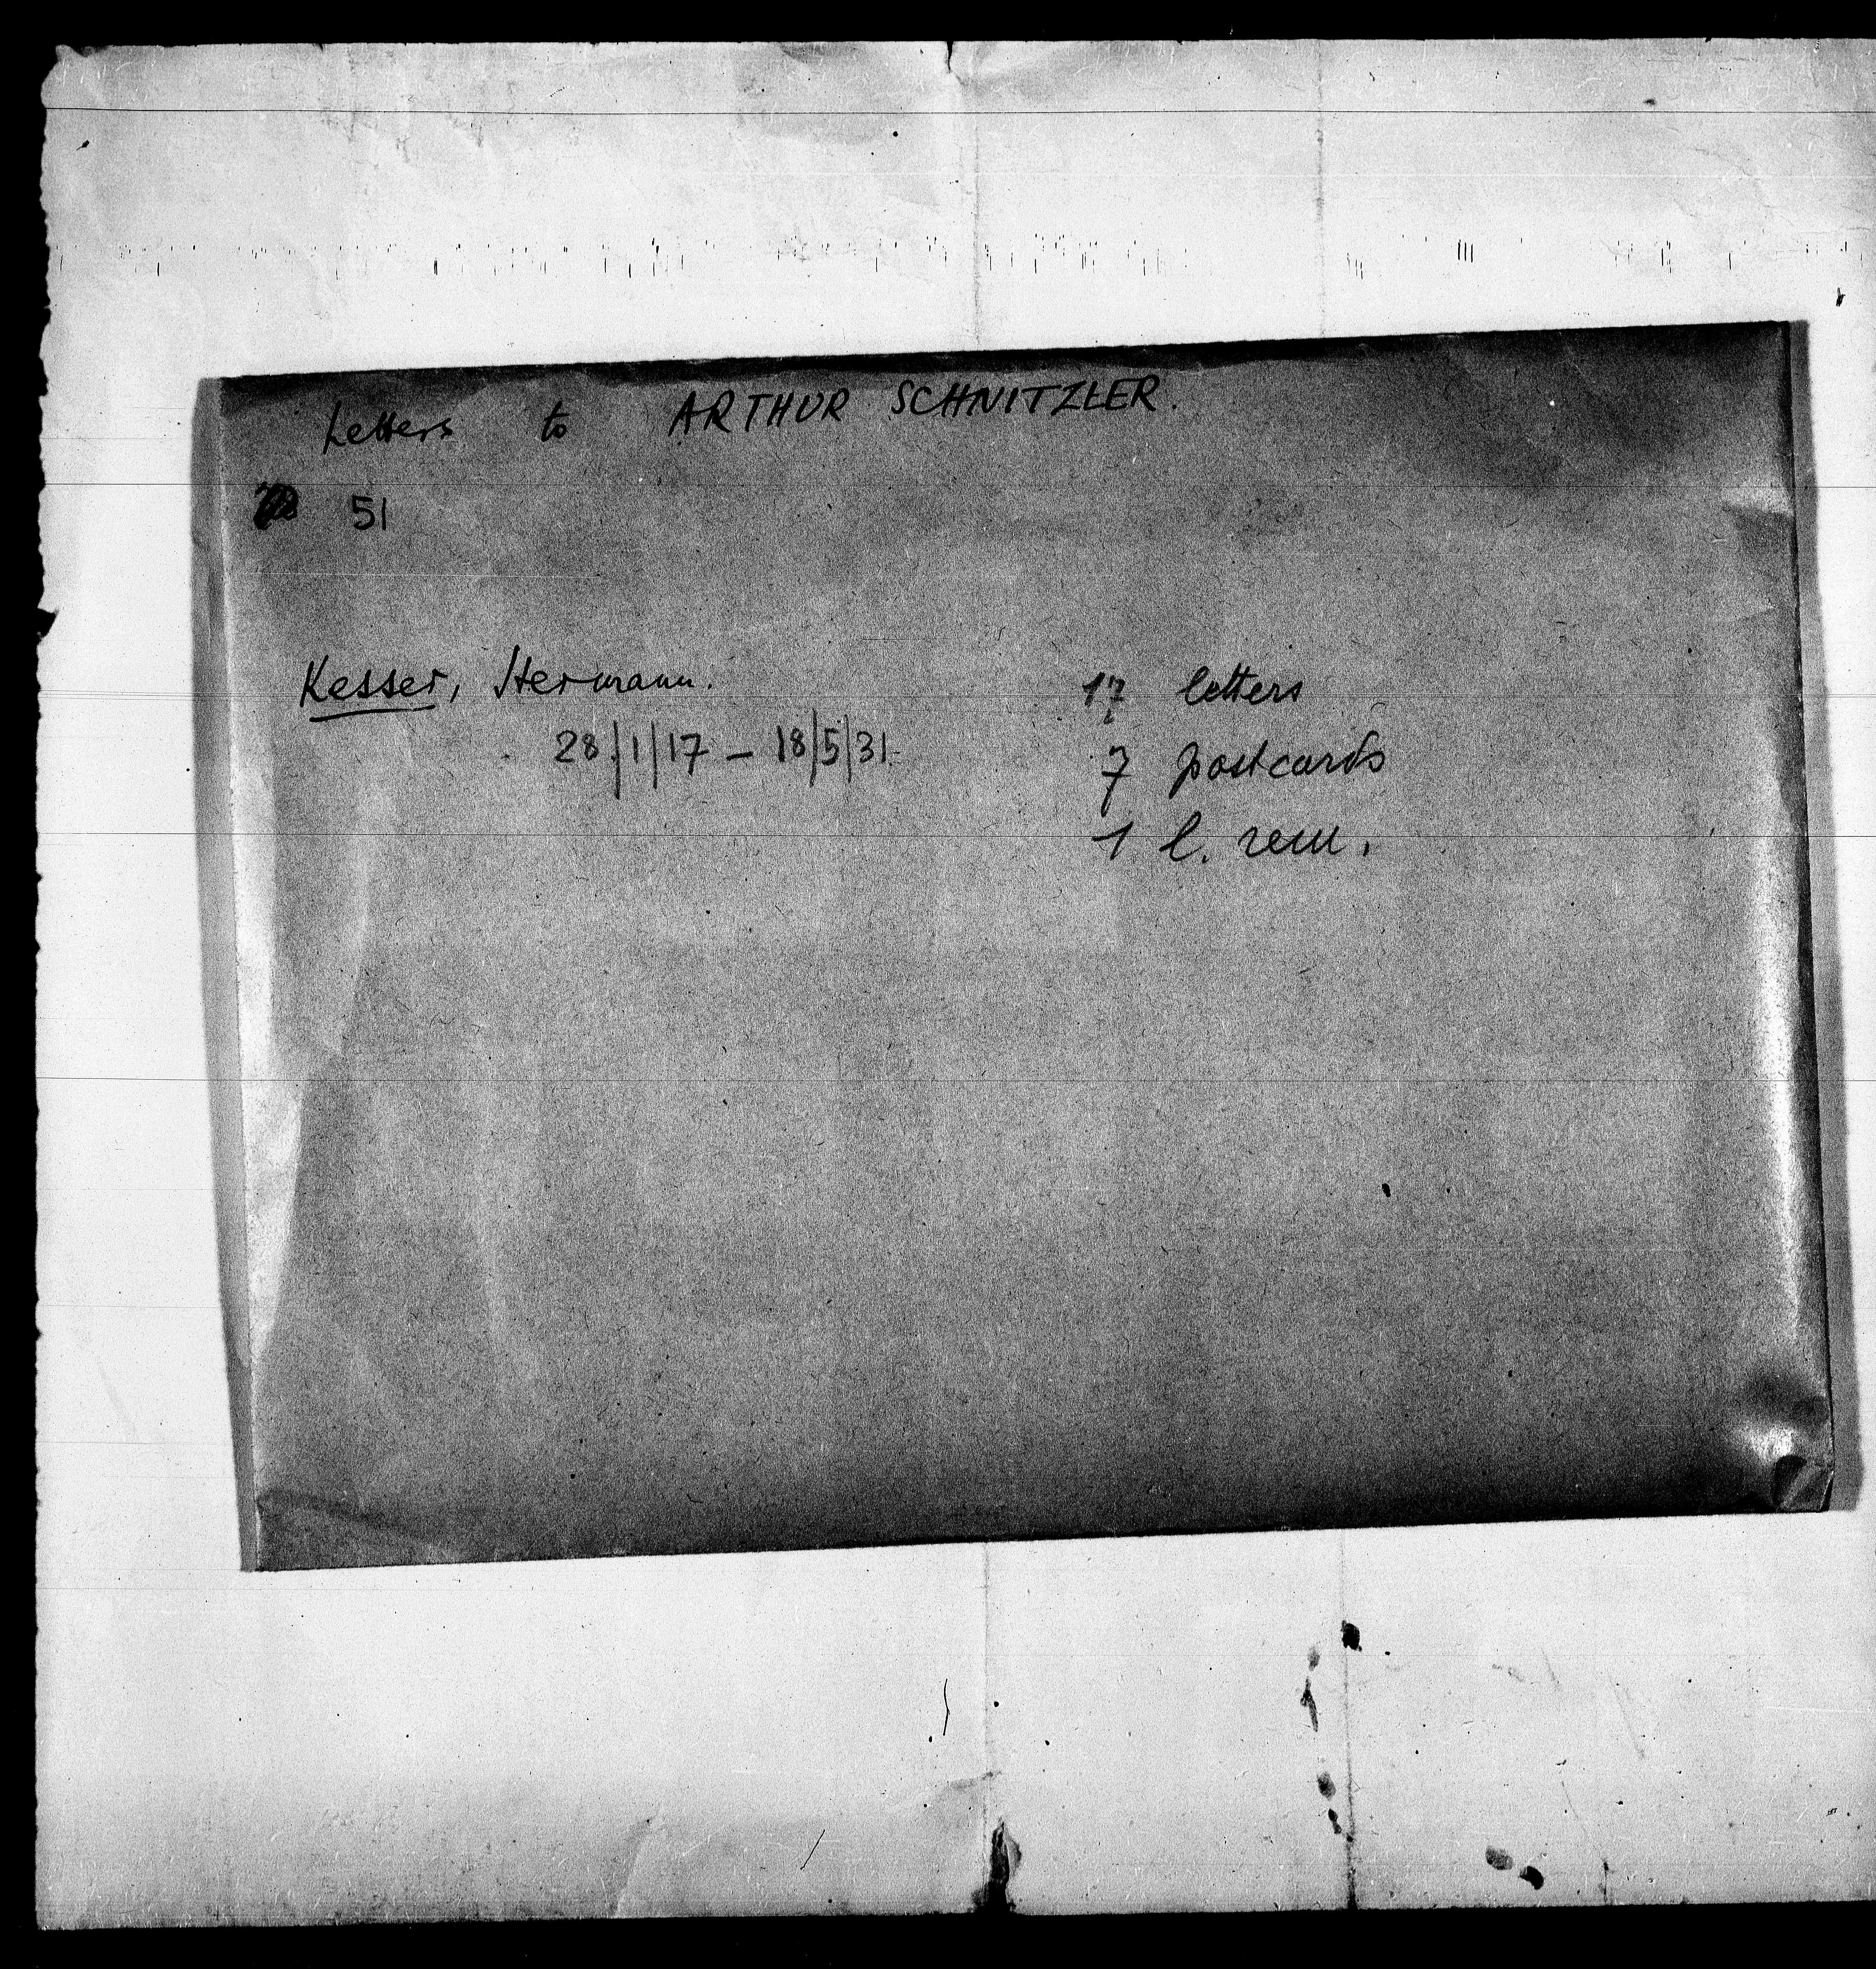 Letters to ARTHUR SCHNITZLER.
51
Kesser, Hermann.
28/1/17 – 18/5/31.
17 letters
7 postcards
1 l. rem.